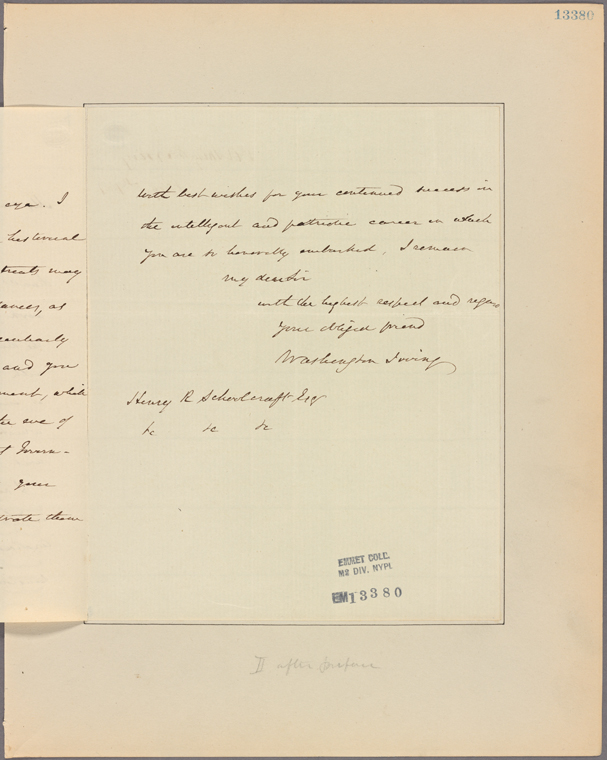 13380
eye. I
historical
treats may
ances, as
and you
ment, while
the eve of
your
wrote them
With best wishes for your continued success in
the intelligent and patriotic career in which
you are so honorably embarked, I remain
my dear sir
with the highest respect and regard
Your obliged friend
Washington Irving
Henry R Schoolcraft Esqr
&c &c &c
EMMET COLL.
M2 DIV. NYPL
EM13380
II after preface